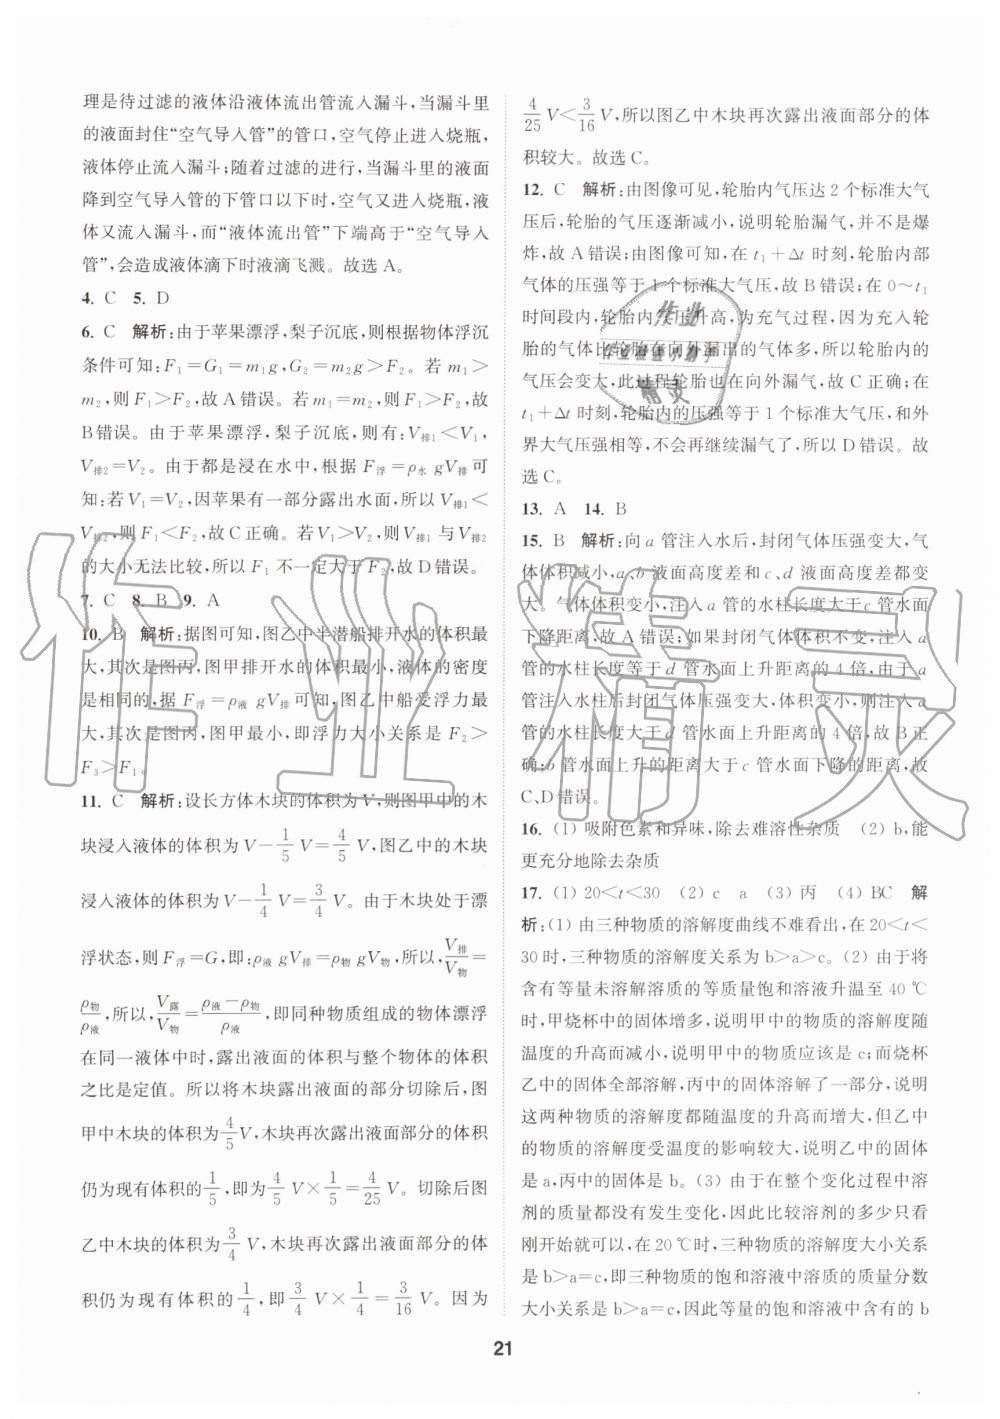 理是待过滤的液体沿液体流出管流入漏斗,当漏斗里
的液面封住“空气导入管”的管口,空气停止进入烧瓶,
液体停止流入漏斗;随着过滤的进行,当漏斗里的液面
降到空气导入管的下管口以下时,空气又进入烧瓶,液
体又流入漏斗,而“液体流出管”下端高于“空气导入
管”,会造成液体滴下时液滴飞溅。故选 A。
4. C 5. D
6. C 解析:由于苹果漂浮,梨子沉底,则根据物体浮沉
条件可知:F₁=G₁=m₁g,G₂=m₂g>F₂。若 m₁>
m₂,则 F₁>F₂,故 A 错误。若 m₁=m₂,则 F₁>F₂,故
B错误。由于苹果漂浮,梨子沉底,则有:V排1<V₁,
V排2=V₂。由于都是浸在水中,根据 F浮=ρ水 gV排可
知:若 V₁=V₂,因苹果有一部分露出水面,所以 V排1<
V排2,则 F₁<F₂,故 C 正确。若 V₁>V₂,则 V排1与 V排2
的大小无法比较,所以 F₁ 不一定大于 F₂,故 D 错误。
7. C 8. B 9. A
10. B 解析:据图可知,图乙中半潜船排开水的体积最
大,其次是图丙,图甲排开水的体积最小,液体的密度
是相同的,据 F浮=ρ液 gV排可知,图乙中船受浮力最
大,其次是图丙,图甲最小,即浮力大小关系是 F₂>
F₃>F₁。
11. C 解析:设长方体木块的体积为 V,则图甲中的木
块浸入液体的体积为 V−1/5 V=4/5 V,图乙中的木块
浸入液体的体积为 V−1/4 V=3/4 V。由于木块处于漂
浮状态,则 F浮=G,即:ρ液 gV排=ρ物 gV物,所以,V排/V物=
ρ物/ρ液,所以,V露/V物=(ρ液−ρ物)/ρ液,即同种物质组成的物体漂浮
在同一液体中时,露出液面的体积与整个物体的体积
之比是定值。所以将木块露出液面的部分切除后,图
甲中木块的体积为4/5 V,木块再次露出液面部分的体积
仍为现有体积的1/5,即为4/5 V×1/5=4/25 V。切除后图
乙中木块的体积为3/4 V,木块再次露出液面部分的体
积仍为现有体积的1/4,即3/4 V×1/4=3/16 V。因为
4/25 V<3/16 V,所以图乙中木块再次露出液面部分的体
积较大。故选 C。
12. C 解析:由图像可见,轮胎内气压达 2 个标准大气
压后,轮胎的气压逐渐减小,说明轮胎漏气,并不是爆
炸,故 A 错误;由图像可知,在 t₁+Δt 时刻,轮胎内部
气体的压强等于 1 个标准大气压,故 B 错误;在 0～t₁
时间段内,轮胎内气压升高,为充气过程,因为充入轮
胎的气体比轮胎在向外漏出的气体多,所以轮胎内的
气压会变大,此过程轮胎也在向外漏气,故 C 正确;在
t₁+Δt 时刻,轮胎内的压强等于 1 个标准大气压,和外
界大气压强相等,不会再继续漏气了,所以 D 错误。故
选 C。
13. A 14. B
15. B 解析:向 a 管注入水后,封闭气体压强变大,气
体体积减小,a、b 液面高度差和 c、d 液面高度差都变
大。气体体积变小,注入 a 管的水柱长度大于 c 管水面
下降距离,故 A 错误;如果封闭气体体积不变,注入 a
管的水柱长度等于 d 管水面上升距离的 4 倍,由于 a
管注入水柱后封闭气体压强变大,体积变小,则注入 a
管的水柱长度大于 d 管水面上升距离的 4 倍,故 B 正
确;b 管水面上升的距离大于 c 管水面下降的距离,故
C、D 错误。
16. (1) 吸附色素和异味,除去难溶性杂质 (2) b,能
更充分地除去杂质
17. (1) 20<t<30 (2) c a (3) 丙 (4) BC 解
析:(1) 由三种物质的溶解度曲线不难看出,在 20<t<
30 时,三种物质溶解度关系为 b>a>c。(2) 由于将
含有等量未溶解溶质的等质量饱和溶液升温至 40 ℃
时,甲烧杯中的固体增多,说明甲中的物质溶解度随
温度的升高而减小,说明甲中的物质应该是 c;而烧杯
乙中的固体全部溶解,丙中的固体溶解了一部分,说明
这两种物质的溶解度都随温度的升高而增大,但乙中
的物质的溶解度受温度的影响较大,说明乙中的固体
是 a,丙中的固体是 b。(3) 由于在整个变化过程中溶
剂的质量都没有发生变化,因此比较溶剂的多少只看
刚开始就可以,在 20 ℃时,三种物质的溶解度大小关系
是 b>a=c,即三种物质的饱和溶液中溶质的质量分数
大小关系是 b>a=c,因此等量的饱和溶液中含有的 b
21
作业精灵
作业
精灵